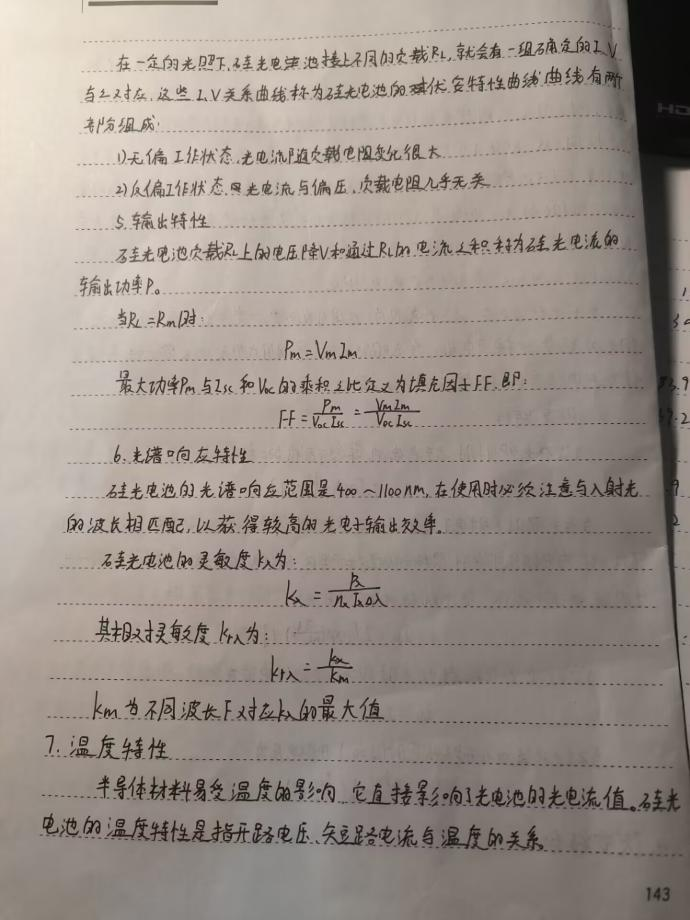 在一定的光照下,硅光电池接上不同的负载RL,就会有一组确定的I、V
与之对应,这些I、V关系曲线称为硅光电池的伏安特性曲线,曲线有两
部分组成:
1)无偏工作状态,光电流随负载电阻变化很大
2)反偏工作状态,光电流与偏压、负载电阻几乎无关
5.输出特性
硅光电池负载RL上的电压降V和通过RL的电流之积称为硅光电流的
输出功率P。
当RL=Rm时:
Pm=VmIm
最大功率Pm与Isc和Voc的乘积之比定义为填充因子FF,即:
FF=Pm/VocIsc=VmIm/VocIsc
6.光谱响应特性
硅光电池的光谱响应范围是400~1100nm,在使用时必须注意与入射光
的波长相匹配,以获得较高的光电子输出效率。
硅光电池的灵敏度kλ为:
kλ=
其相对灵敏度krλ为:
krλ=kλ/km
km为不同波长下对应kλ的最大值
7.温度特性
半导体材料易受温度的影响,它直接影响了光电池的光电流值。硅光
电池的温度特性是指开路电压、短路电流与温度的关系。
143